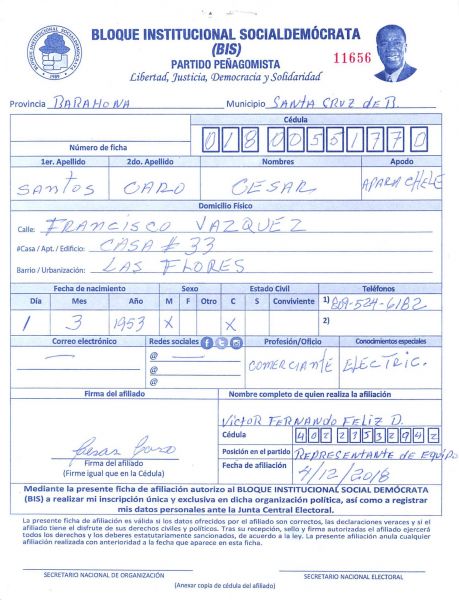 BLOQUE INSTITUCIONAL SOCIALDEMÓCRATA
(BIS)
PARTIDO PEÑAGOMISTA
Libertad, Justicia, Democracia y Solidaridad
11656
Provincia BARAHONA Municipio SANTA CRUZ de B.
Cédula
Número de ficha 01800551770
1er. Apellido 2do. Apellido Nombres Apodo
SANTOS CARO CESAR APARA CHELE
Domicilio Físico
Calle: FRANCISCO VAZQUEZ
#Casa / Apt. / Edificio: CASA # 33
Barrio / Urbanización: LAS FLORES
Fecha de nacimiento Sexo Estado Civil Teléfonos
Día Mes Año M F Otro C S Conviviente 1) 809-524-6182
1 3 1953 X X 2)
Correo electrónico Redes sociales Profesión/Oficio Conocimientos especiales
@ COMERCIANTE ELECTRIC.
@
@
Firma del afiliado Nombre completo de quien realiza la afiliación
VICTOR FERNANDO FELIZ D.
Cédula 40223532942
Posición en el partido REPRESENTANTE DE EQUIPO
Fecha de afiliación 4/12/2018
Firma del afiliado
(Firme igual que en la Cédula)
Mediante la presente ficha de afiliación autorizo al BLOQUE INSTITUCIONAL SOCIAL DEMÓCRATA
(BIS) a realizar mi inscripción única y exclusiva en dicha organización política, así como a registrar
mis datos personales ante la Junta Central Electoral.
La presente ficha de afiliación es válida si los datos ofrecidos por el afiliado son correctos, las declaraciones veraces y si el
afiliado tiene el disfrute de sus derechos civiles y políticos. Tras su recepción, sello y firma autorizadas el afiliado ejercerá
todos los derechos y los deberes estatutariamente sancionados, de acuerdo a la ley. La presente afiliación anula cualquier
afiliación realizada con anterioridad a la fecha que aparece en esta ficha.
SECRETARIO NACIONAL DE ORGANIZACIÓN SECRETARIO NACIONAL ELECTORAL
(Anexar copia de cédula del afiliado)